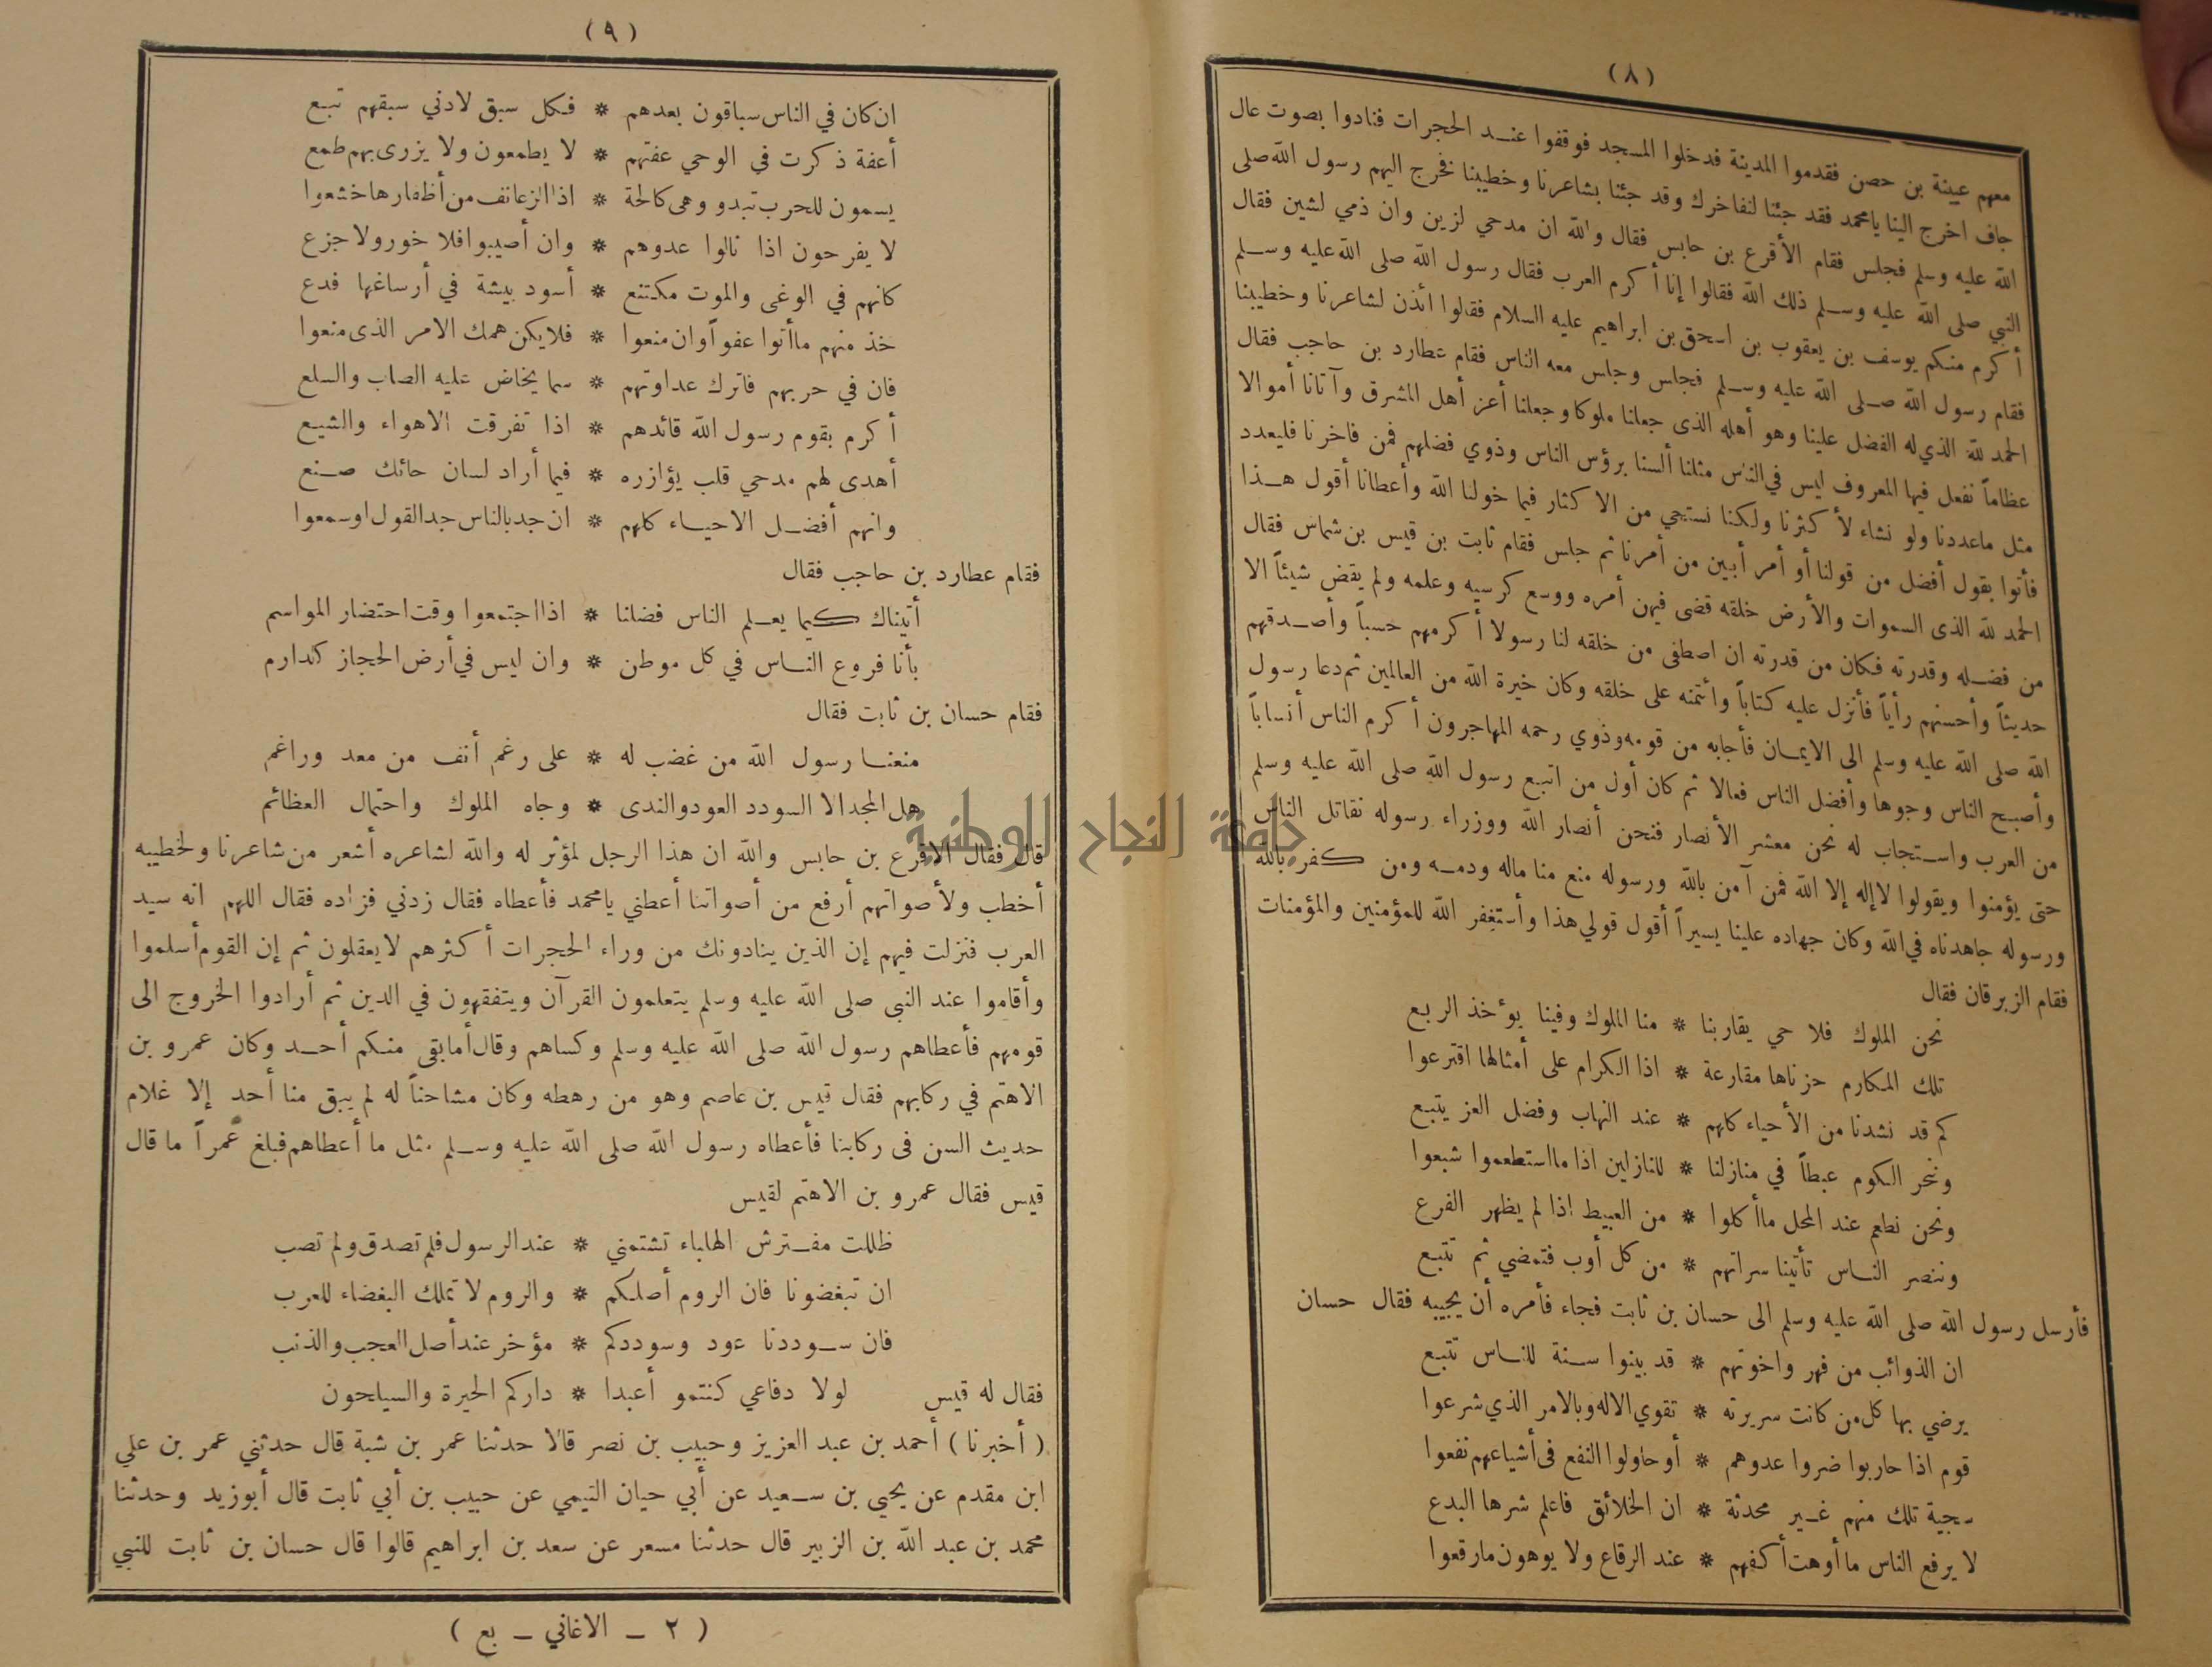 (٨)
معهم عيينة بن حصن فقدموا المدينة فدخلوا المسجد فوقفوا عند الحجرات فنادوا بصوت عال
جاف اخرج الينا يامحمد فقد جئنا لنفاخرك وقد جئنا بشاعرنا وخطيبنا فخرج اليهم رسول الله صلى
الله عليه وسلم فجلس فقام الأقرع بن حابس فقال والله ان مدحي لزين وان ذمي لشين فقال
النبي صلى الله عليه وسلم ذلك الله فقالوا إنا أكرم العرب فقال رسول الله صلى الله عليه وسلم
أكرم منكم يوسف بن يعقوب بن اسحق بن ابراهيم عليه السلام فقالوا ائذن لشاعرنا وخطيبنا
فقام رسول الله صلى الله عليه وسلم فجلس وجلس معه الناس فقام عطارد بن حاجب فقال
الحمد لله الذي له الفضل علينا وهو أهله الذى جعلنا ملوكا وجعلنا أعز أهل المشرق وآتانا أموالا
عظاماً نفعل فيها المعروف ليس في الناس مثلنا ألسنا برؤس الناس وذوي فضلهم فمن فاخرنا فليعدد
مثل ماعددنا ولو نشاء لأكثرنا ولكنا نستحي من الاكثار فيما خولنا الله وأعطانا أقول هذا
فأتوا بقول أفضل من قولنا أو أمر أبين من أمرنا ثم جلس فقام ثابت بن قيس بن شماس فقال
الحمد لله الذى السموات والأرض خلقه قضى فيهن أمره ووسع كرسيه وعلمه ولم يقض شيئاً الا
من فضله وقدرته فكان من قدرته ان اصطفى من خلقه لنا رسولا أكرمهم حسباً وأصدقهم
حديثاً وأحسنهم رأياً فأنزل عليه كتاباً وائتمنه على خلقه وكان خيرة الله من العالمين ثم دعا رسول
الله صلى الله عليه وسلم الى الايمان فأجابه من قومه وذوي رحمه المهاجرون أكرم الناس أنساباً
وأصبح الناس وجوها وأفضل الناس فعالا ثم كان أول من اتبع رسول الله صلى الله عليه وسلم
من العرب واستجاب له نحن معشر الأنصار فنحن أنصار الله ووزراء رسوله نقاتل الناس
حتى يؤمنوا ويقولوا لاإله إلا الله فمن آمن بالله ورسوله منع منا ماله ودمه ومن كفر بالله
ورسوله جاهدناه في الله وكان جهاده علينا يسيراً أقول قولي هذا وأستغفر الله للمؤمنين والمؤمنات
فقام الزبرقان فقال
نحن الملوك فلا حي يقاربنا * منا الملوك وفينا يؤخذ الربع
تلك المكارم حزناها مقارعة * اذا الكرام على أمثالها اقترعوا
كم قد نشدنا من الأحياء كلهم * عند النهاب وفضل العز يتبع
وننحر الكوم عبطاً في منازلنا * للنازلين اذا مااستطعموا شبعوا
ونحن نطعم عند المحل ماأكلوا * من العبيط اذا لم يظهر الفرع
وننصر الناس تأتينا سراتهم * من كل أوب فتمضي ثم تتبع
فأرسل رسول الله صلى الله عليه وسلم الى حسان بن ثابت فجاء فأمره أن يجيبه فقال حسان
ان الذوائب من فهر واخوتهم * قد بينوا سنة للناس تتبع
يرضي بها كل من كانت سريرته * تقوي الاله وبالامر الذي شرعوا
قوم اذا حاربوا ضروا عدوهم * أو حاولوا النفع فى أشياعهم نفعوا
سجية تلك منهم غير محدثة * ان الخلائق فاعلم شرها البدع
لا يرفع الناس ما أوهت أكفهم * عند الرقاع ولا يوهون مارقعوا
(٩)
ان كان في الناس سباقون بعدهم * فكل سبق لادني سبقهم تبع
أعفة ذكرت في الوحي عفتهم * لا يطمعون ولا يزرى بهم طمع
يسمون للحرب تبدو وهى كالحة * اذا الزعانف من أظفارها خشعوا
لا يفرحون اذا نالوا عدوهم * وان أصيبوا فلا خور ولا جزع
كانهم في الوغى والموت مكتنع * أسود بيشة في أرساغها فدع
خذ منهم ماأتوا عفواً وان منعوا * فلا يكن همك الامر الذى منعوا
فان في حربهم فاترك عداوتهم * سما يخاض عليه الصاب والسلع
أكرم بقوم رسول الله قائدهم * اذا تفرقت الاهواء والشيع
أهدى لهم مدحي قلب يؤازره * فيما أراد لسان حائك صنع
وانهم أفضل الاحياء كلهم * ان جد بالناس جد القول اوسمعوا
فقام عطارد بن حاجب فقال
أتيناك كيما يعلم الناس فضلنا * اذا اجتمعوا وقت احتضار المواسم
بأنا فروع الناس في كل موطن * وان ليس في أرض الحجاز كدارم
فقام حسان بن ثابت فقال
منعنا رسول الله من غضب له * على رغم أنف من معد وراغم
هل المجد الا السودد العود والندى * وجاه الملوك واحتمال العظائم
جامعة النجاح الوطنية
قال فقال الاقرع بن حابس والله ان هذا الرجل لمؤثر له والله لشاعره أشعر من شاعرنا ولخطيبه
أخطب ولأصواتهم أرفع من أصواتنا أعطني يامحمد فأعطاه فقال زدني فزاده فقال اللهم انه سيد
العرب فنزلت فيهم إن الذين ينادونك من وراء الحجرات أكثرهم لايعقلون ثم إن القوم أسلموا
وأقاموا عند النبي صلى الله عليه وسلم يتعلمون القرآن ويتفقهون في الدين ثم أرادوا الخروج الى
قومهم فأعطاهم رسول الله صلى الله عليه وسلم وكساهم وقال أما بقى منكم أحد وكان عمرو بن
الاهتم في ركابهم فقال قيس بن عاصم وهو من رهطه وكان مشاحناً له لم يبق منا أحد إلا غلام
حديث السن فى ركابنا فأعطاه رسول الله صلى الله عليه وسلم مثل ما أعطاهم فبلغ عمراً ما قال
قيس فقال عمرو بن الاهتم لقيس
ظللت مفترش الهلباء تشتمني * عند الرسول فلم تصدق ولم تصب
ان تبغضونا فان الروم أصلكم * والروم لا تملك البغضاء للعرب
فان سوددنا عود وسوددكم * مؤخر عند أصل العجب والذنب
فقال له قيس لولا دفاعي كنتمو أعبدا * داركم الحيرة والسيلحون
(أخبرنا) أحمد بن عبد العزيز وحبيب بن نصر قالا حدثنا عمر بن شبة قال حدثني عمر بن علي
ابن مقدم عن يحيى بن سعيد عن أبي حيان التيمي عن حبيب بن أبي ثابت قال أبوزيد وحدثنا
محمد بن عبد الله بن الزبير قال حدثنا مسعر عن سعد بن ابراهيم قالوا قال حسان بن ثابت للنبي
(٢ ــ الاغاني ــ بع)